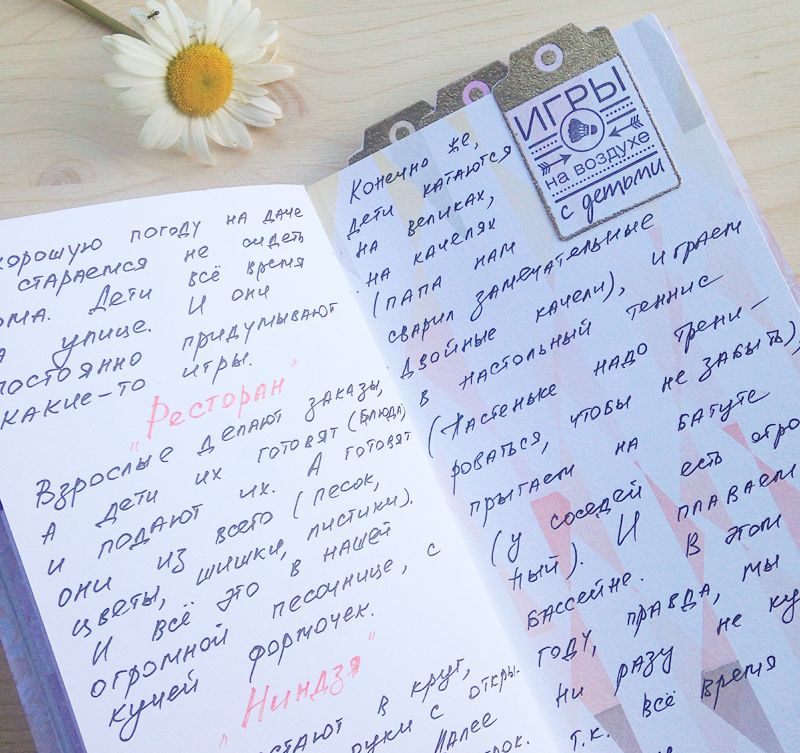 хорошую погоду на даче
стараемся не сидеть
дома. Дети всё время
на улице. И они
постоянно придумывают
какие-то игры.
"Ресторан"
Взрослые делают заказы,
а дети их готовят (блюда)
и подают их. А готовят
они из всего (песок,
цветы, шишки, листики).
И всё это в нашей
огромной песочнице, с
кучей формочек.
"Ниндзя"
встают в круг,
руки с откры-
Далее
ИГРЫ
на воздухе
с детьми
Конечно же,
дети катаются
на великах,
на качелях
(папа нам
сварил замечательные
двойные качели), играем
в настольный теннис
(Настеньке надо трени-
роваться, чтобы не забыть),
прыгаем на батуте
(у соседей есть огро
ный). И плаваем
бассейне. В этом
году, правда, мы
ни разу не ку
т.к. всё время